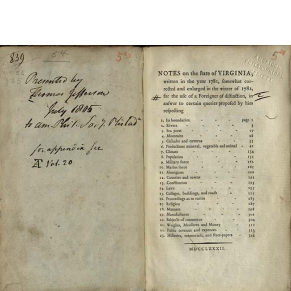 839
Presented by
Thomas Jefferson
July 1805
to am. Phil. Soc.
for appendix see
Vol. 20
NOTES on the state of VIRGINIA;
written in the year 1781, somewhat cor-
rected and enlarged in the winter of 1782,
for the use of a Foreigner of distinction, in
answer to certain queries proposed by him
respecting
1. Its boundaries page 1
2. Rivers
3. Sea ports
4. Mountains
5. Cascades and caverns
6. Productions mineral, vegetable and animal
7. Climate
8. Population
9. Military force
10. Marine force
11. Aborigines
12. Counties and towns
13. Constitution
14. Laws
15. Colleges, buildings, and roads
16. Proceedings as to tories
17. Religion
18. Manners
19. Manufactures
20. Subjects of commerce
21. Weights, Measures and Money
22. Public revenue and expences
23. Histories, memorials, and state-papers
MDCCLXXXII.